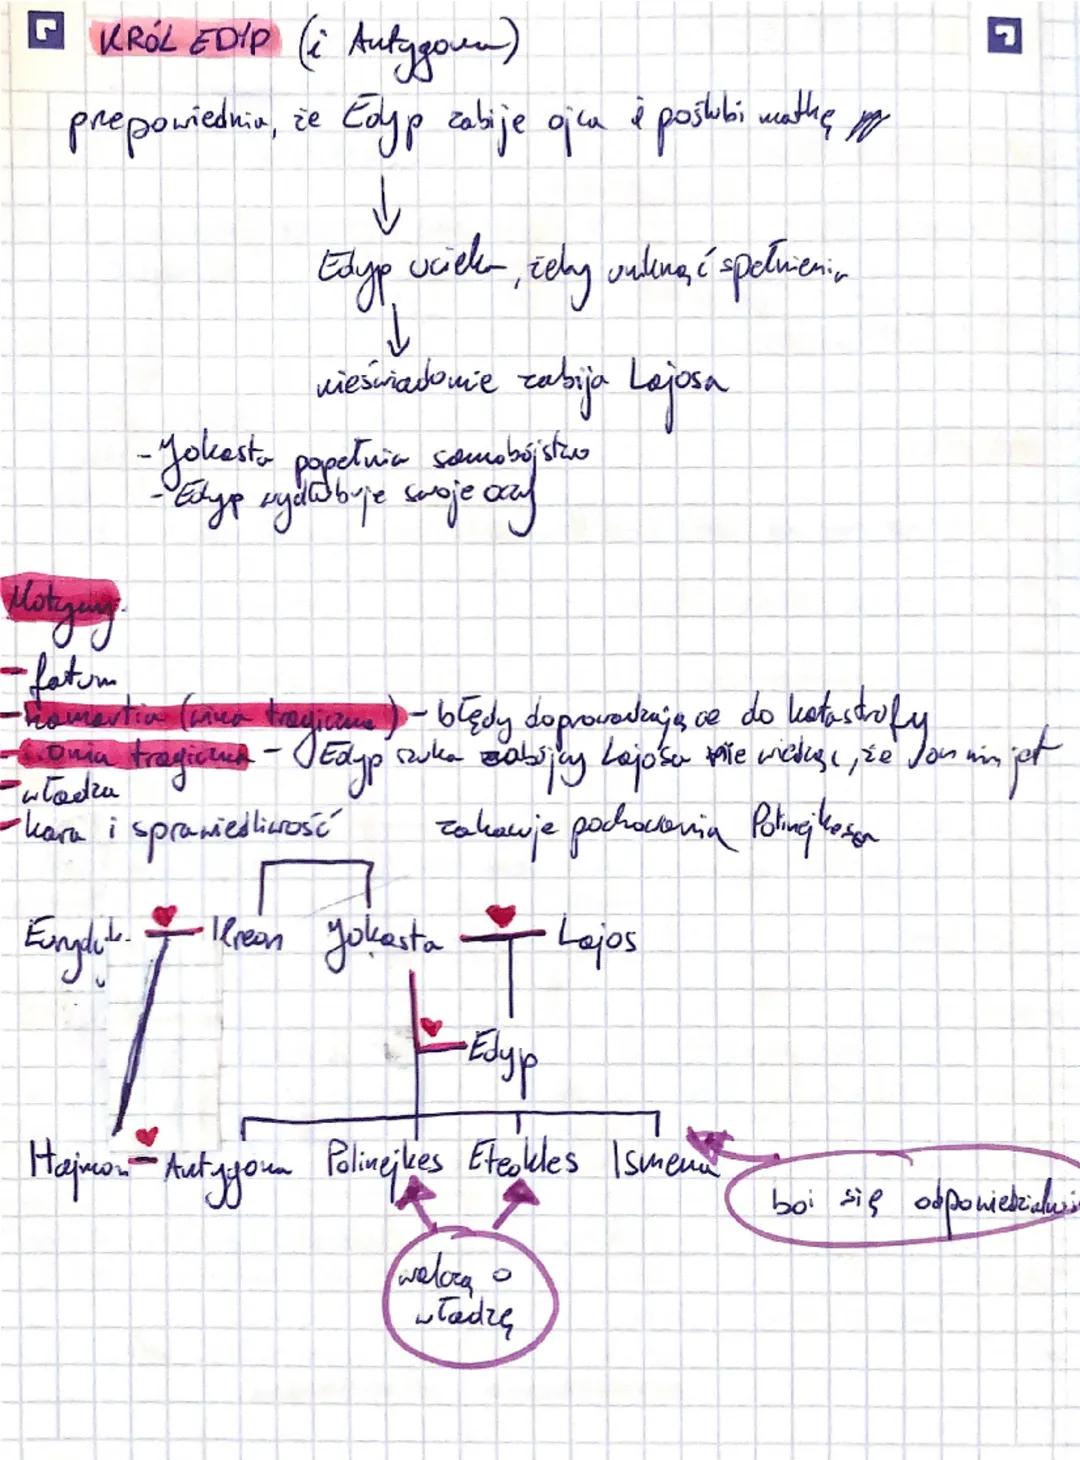 KRÓL EDYP (i Antygona)
prepowiednia, że Edyp zabije ojca i poślubi matkę
Edyp ucieka, żeby uniknąć spełnienia
nieświadomie zabija Lajosa
- Jokasta popełnia samobójstwo
- Edyp wydłubuje swoje oczy
Motywy:
- fatum
- hamartia (wina tragiczna) - błędy doprowadzające do katastrofy
- ironia tragiczna - Edyp szuka zabójcy Lajosa nie wiedząc, że on nim jest
- władza
- kara i sprawiedliwość
zakazuje pochowania Polinejkesa
Eurydyka Kreon Jokasta Lajos
Edyp
Hajmon Antygona Polinejkes Eteokles Ismena
boi się odpowiedzialnoś
walczą o
władzę